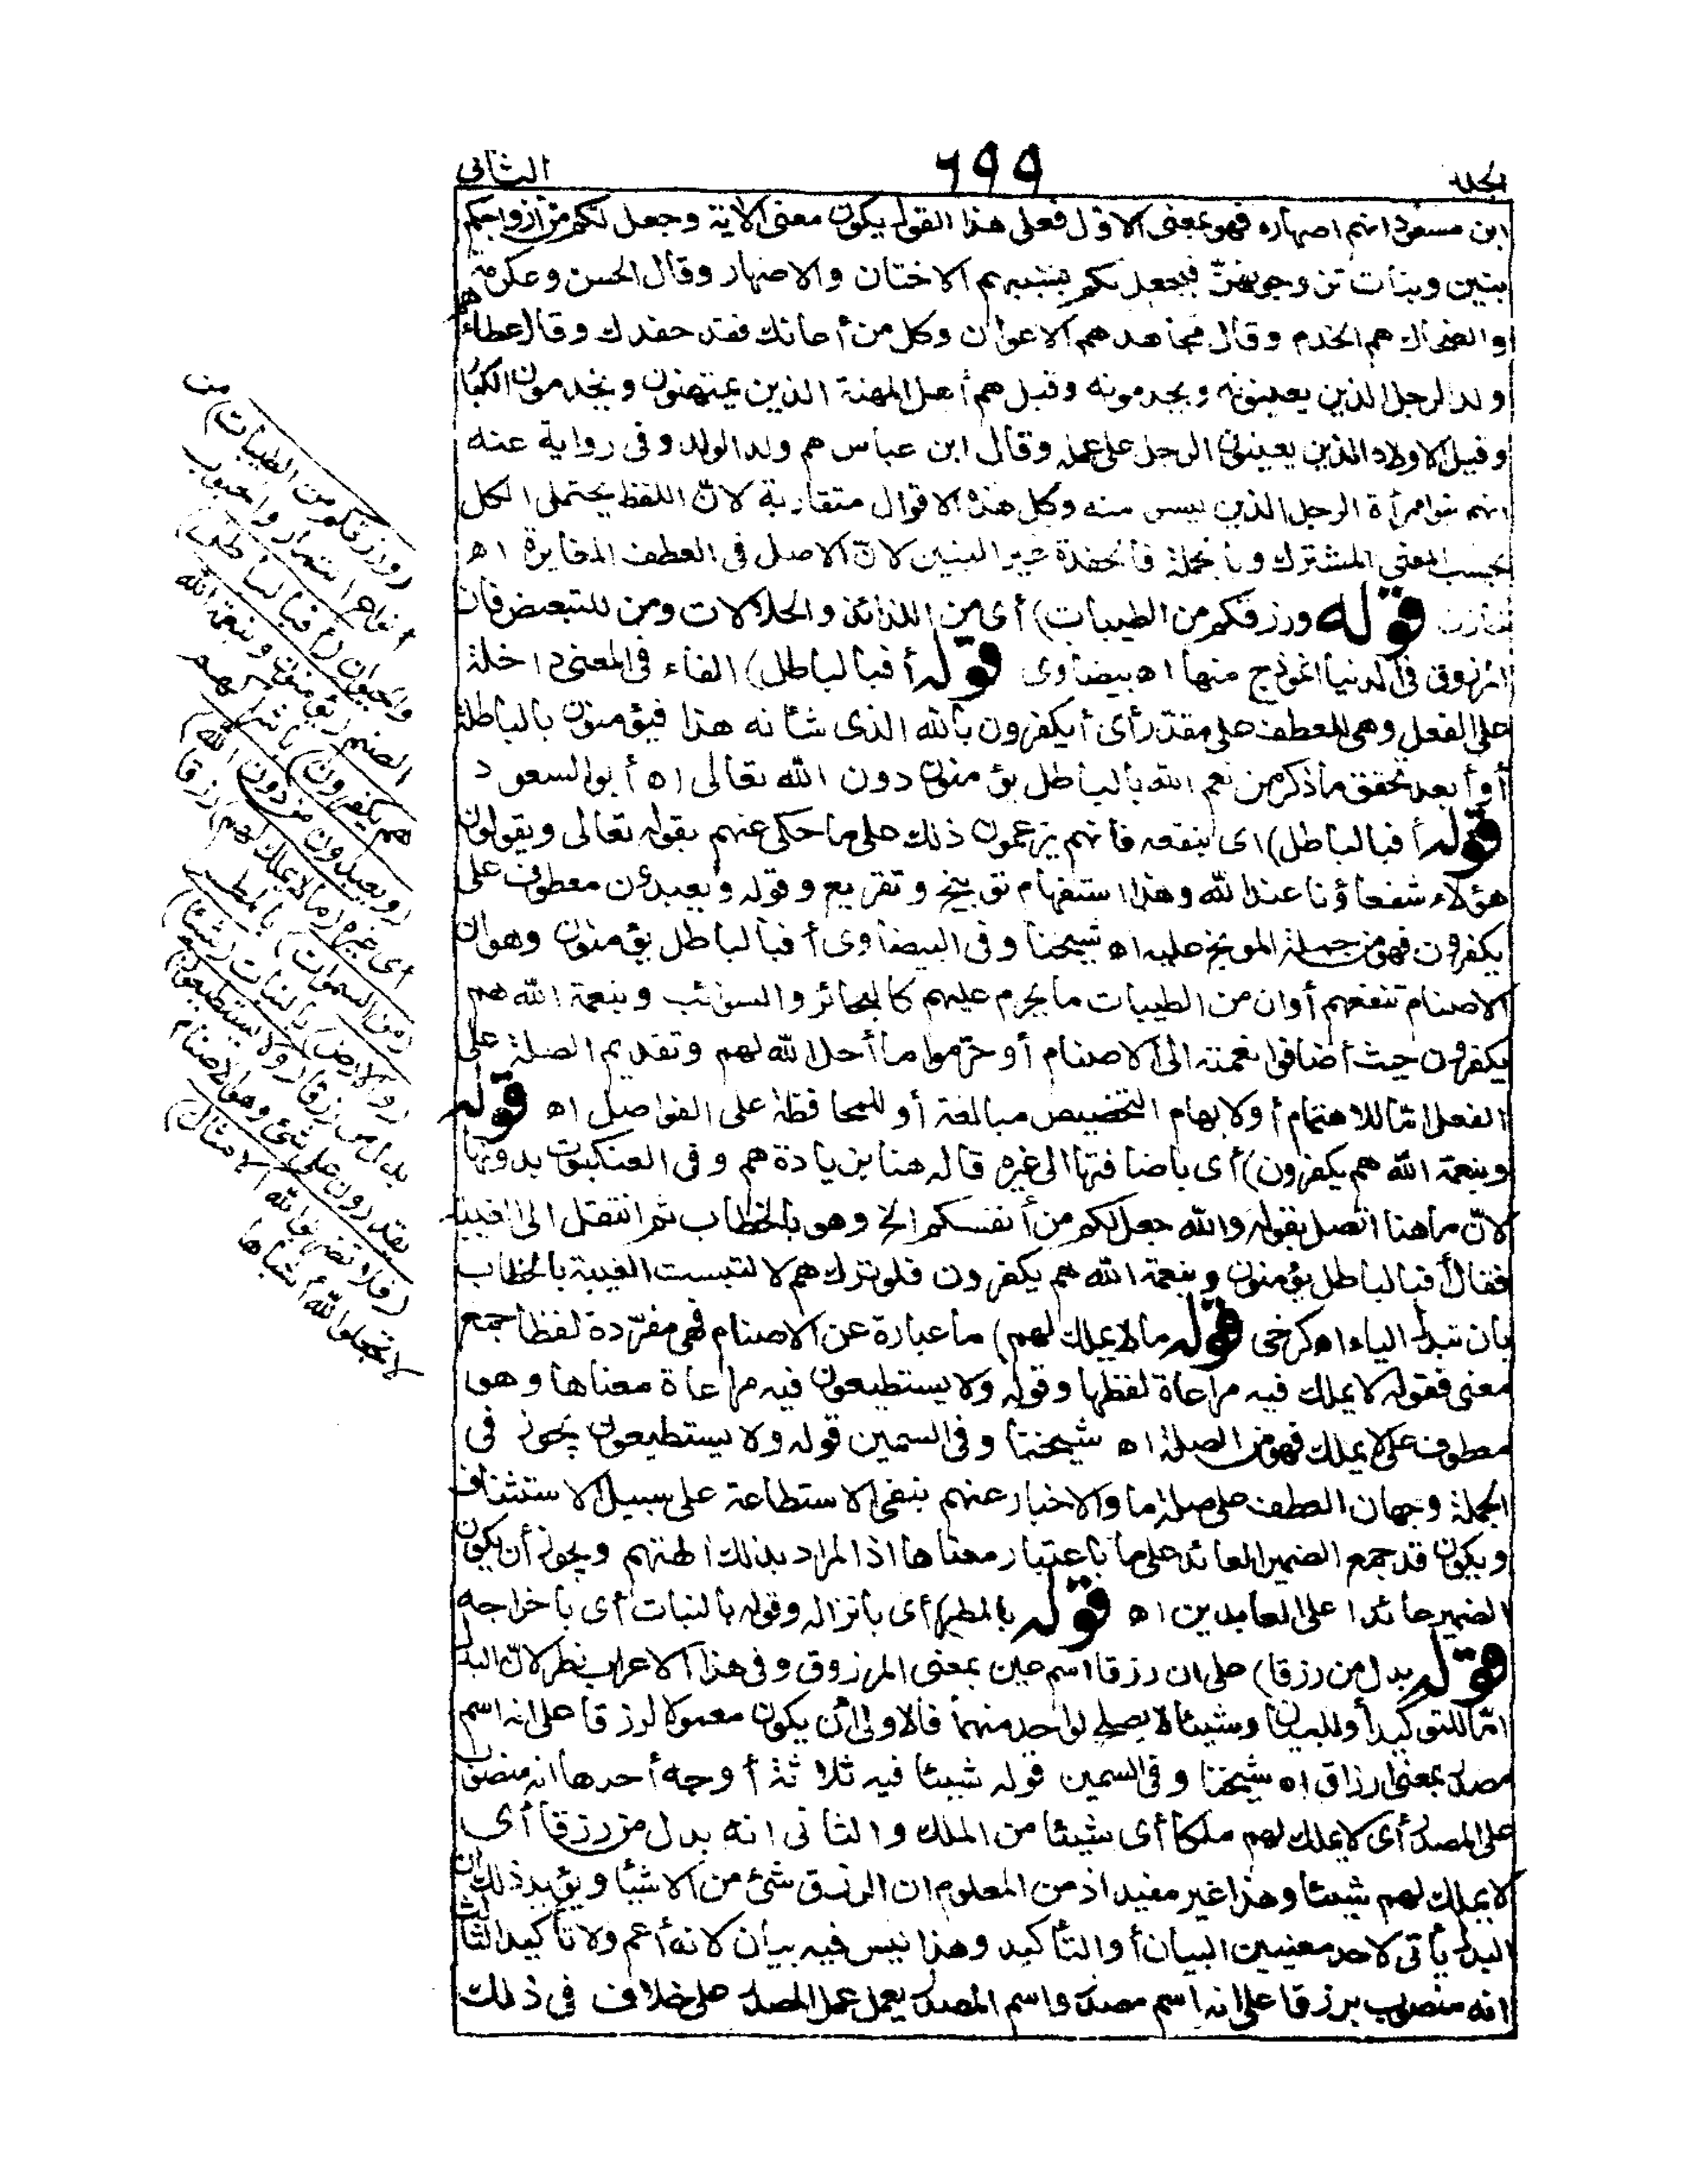 الجلد
٦٩٩
الثانى
ابن مسعود انهم اصهاره فهو بمعنى الاول فعلى هذا القول يكون معنى الاية وجعل لكم من أزواجكم
بنين وبنات تزوجونهن فيجعل لكم بسببهم الاختان والاصهار وقال الحسن وعكرمة
والضحاك هم الخدم وقال مجاهد هم الاعوان وكل من أعانك فقد حفدك وقال عطاء هم
ولد الرجل الذين يعينونه ويخدمونه وقيل هم أهل المهنة الذين يمتهنون ويخدمون الكبار
وقيل الاولاد الذين يعينون الرجل على عمله وقال ابن عباس هم ولد الولد وفى رواية عنه
انهم بنو امرأة الرجل الذين ليسوا منه وكل هذه الاقوال متقاربة لان اللفظ يحتمل الكل
بحسب المعنى المشترك وبالجملة فالحفدة غير البنين لان الاصل فى العطف المغايرة اه
خازن قوله ورزقكم من الطيبات) أى من اللذائذ والحلالات ومن للتبعيض فان
المرزوق فى الدنيا انموذج منها اه بيضاوى قوله أفبالباطل) الفاء فى المعنى داخلة
على الفعل وهى للعطف على مقدر أى أيكفرون بالله الذى شأنه هذا فيؤمنون بالباطل
أو أبعد تحقق ما ذكر من نعم الله بالباطل يؤمنون دون الله تعالى اه أبو السعود
قوله أفبالباطل) اى بنفعه فانهم يزعمون ذلك على ما حكى عنهم بقوله تعالى ويقولون
هؤلاء شفعاؤنا عند الله وهذا استفهام توبيخ وتقريع وقوله ويعبدون معطوف على
يكفرون فهو من جملة الموبخ عليه اه شيخنا وفى البيضاوى أفبالباطل يؤمنون وهو ان
الاصنام تنفعهم أو ان من الطيبات ما يحرم عليهم كالبحائر والسوائب وبنعمة الله هم
يكفرون حيث أضافوا نعمته الى الاصنام أو حرموا ما أحل الله لهم وتقديم الصلة على
الفعل اما للاهتمام أو لايهام التخصيص مبالغة أو للمحافظة على الفواصل اه قوله
وبنعمة الله هم يكفرون) أى باضافتها الى غيره قاله هنا بزيادة هم وفى العنكبوت بدونها
لان ما هنا اتصل بقوله والله جعل لكم من أنفسكم الخ وهو بالخطاب ثم انتقل الى الغيبة
فقال أفبالباطل يؤمنون وبنعمة الله هم يكفرون فلو ترك هم لالتبست الغيبة بالخطاب
بان تبدل الياء اه كرخى قوله ما لا يملك لهم) ما عبارة عن الاصنام فهى مفردة لفظا جمع
معنى فقوله لا يملك فيه مراعاة لفظها وقوله ولا يستطيعون فيه مراعاة معناها وهو
معطوف على لا يملك فهو من الصلة اه شيخنا وفى السمين قوله ولا يستطيعون يجوز فى
الجملة وجهان العطف على صلة ما والاخبار عنهم بنفى الاستطاعة على سبيل الاستئناف
ويكون قد جمع الضمير العائد على ما باعتبار معناها اذ المراد بذلك الهتهم ويجوز أن يكون
الضمير عائدا على العابدين اه قوله بالمطر) أى بانزاله وقوله بالنبات أى باخراجه
قوله بدل من رزقا) على ان رزقا اسم عين بمعنى المرزوق وفى هذا الاعراب نظر لان البدل
اما للتوكيد أو للبيان وشيئا لا يصلح لواحد منهما فالاولى أن يكون معمولا لرزقا على انه اسم
مصدر بمعنى ارزاق اه شيخنا وفى السمين قوله شيئا فيه ثلاثة أوجه أحدها انه منصوب
على المصدر أى لا يملك لهم ملكا أى شيئا من الملك والثانى انه بدل من رزقا أى
لا يملك لهم شيئا وهذا غير مفيد اذ من المعلوم ان الرزق شئ من الاشياء ويؤيد ذلك ان
البدل يأتى لاحد معنيين البيان أو التأكيد وهذا ليس فيه بيان لانه أعم ولا تأكيد الثالث
انه منصوب برزقا على انه اسم مصدر واسم المصدر يعمل عمل المصدر على خلاف فى ذلك
(ورزقكم من الطيبات) من
أنواع الثمار والحبوب
والحيوان (أفبالباطل)
الصنم (يؤمنون وبنعمة الله
هم يكفرون) باشراكهم
(ويعبدون من دون الله)
أى غيره (ما لا يملك لهم رزقا
من السموات) بالمطر
(والارض) بالنبات (شيئا)
بدل من رزقا (ولا يستطيعون)
يقدرون على شئ وهو الاصنام
(فلا تضربوا لله الامثال)
لا تجعلوا لله أشباها